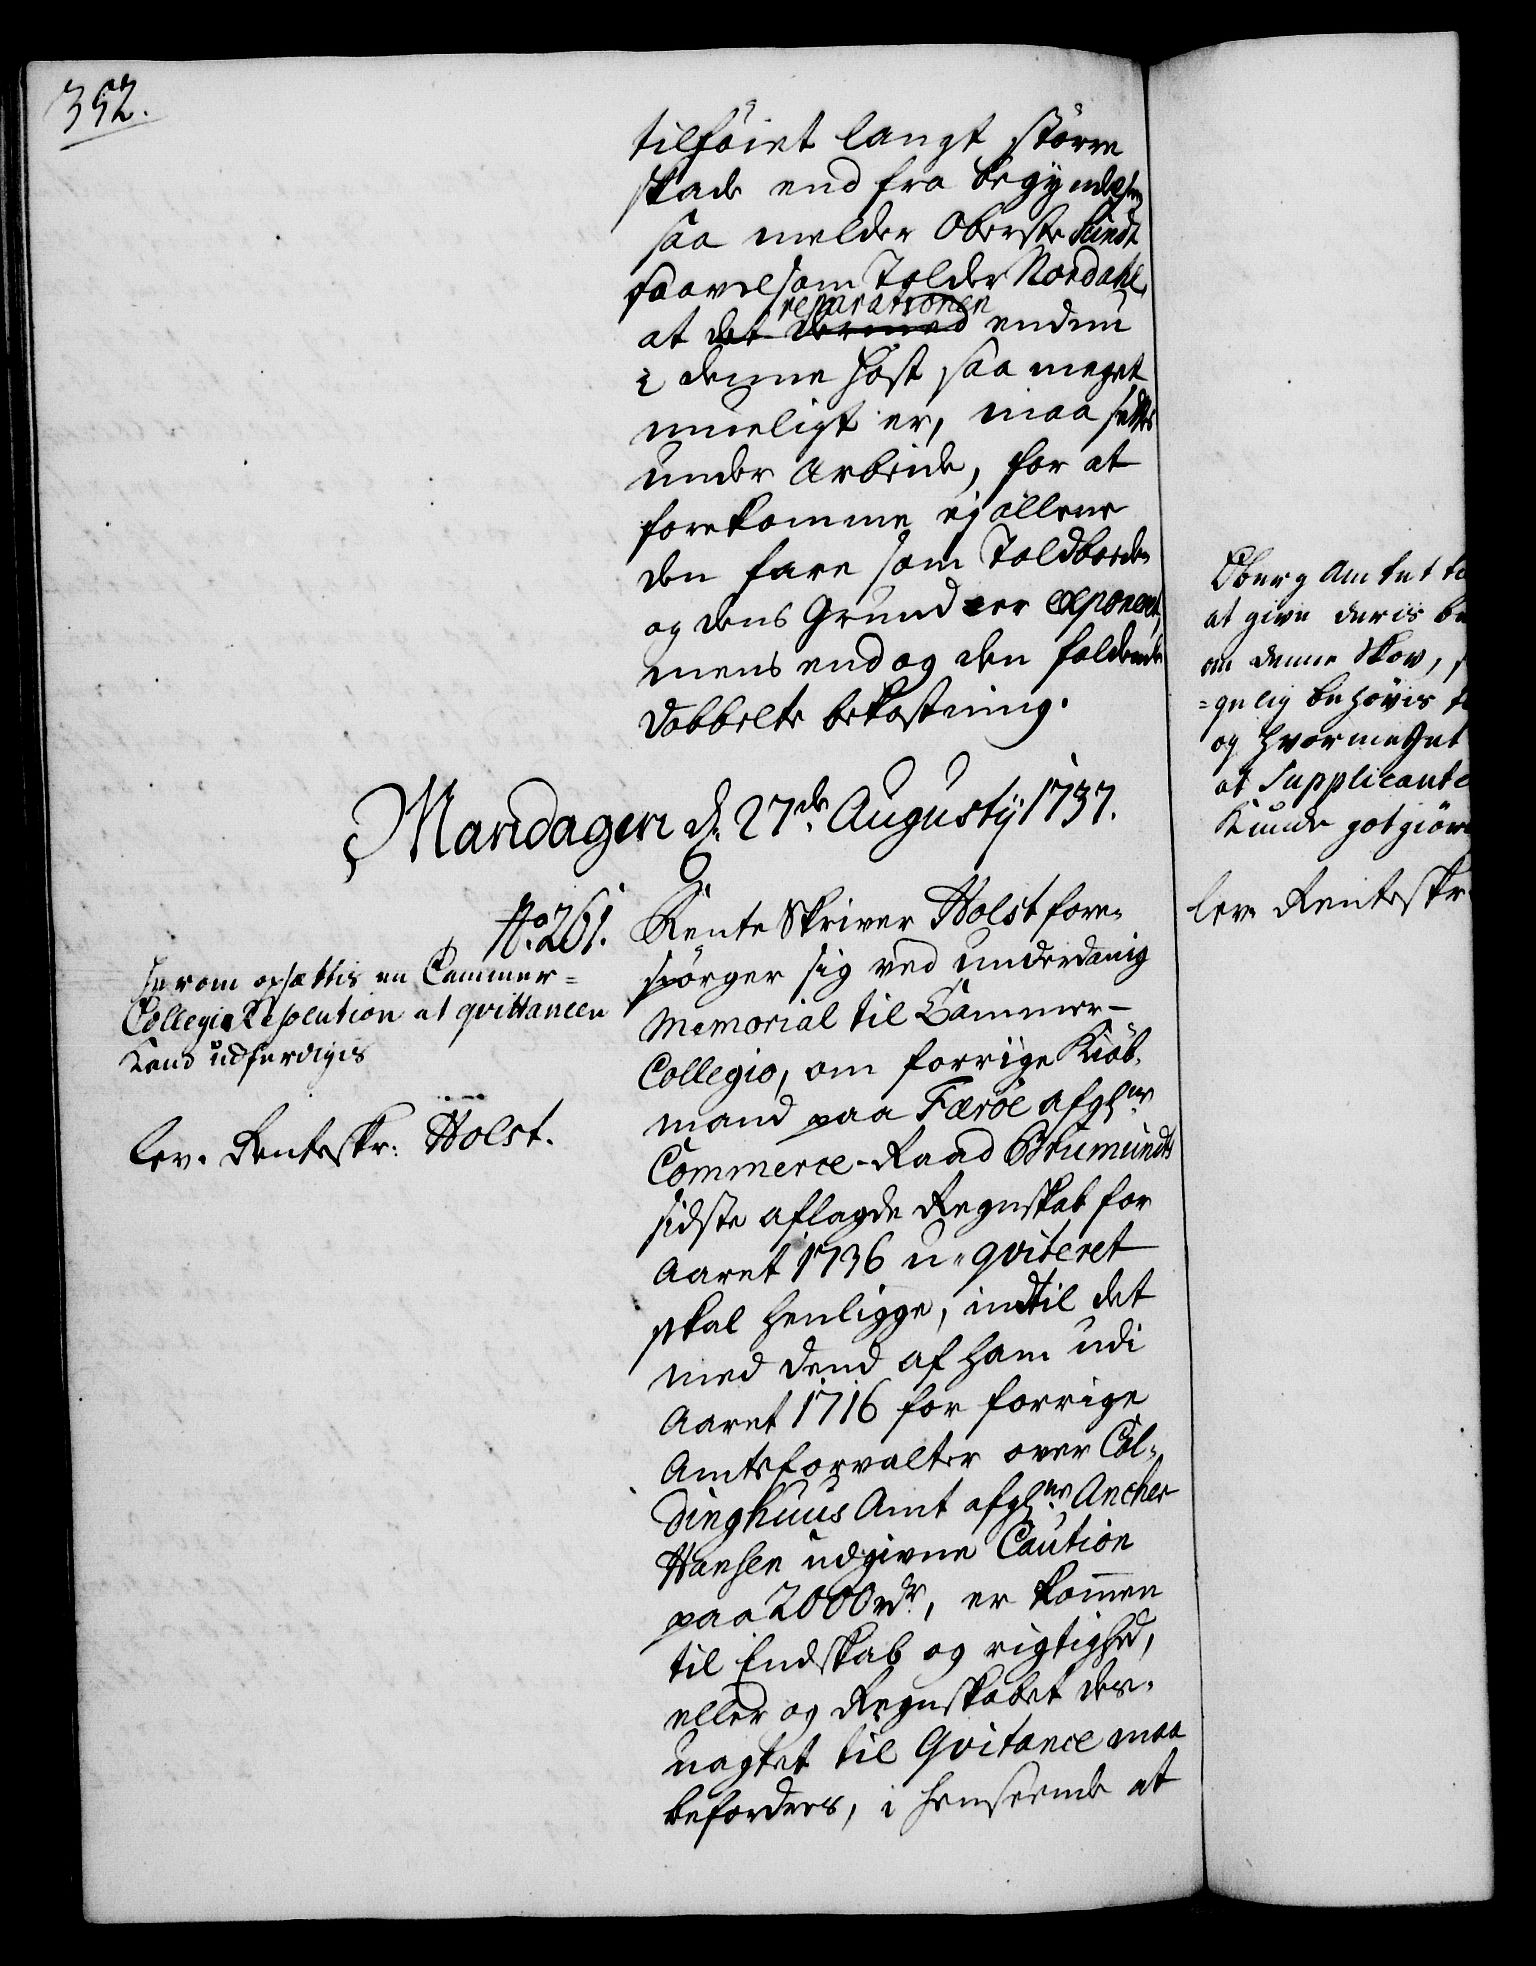 352.
tilföiet langt större
skade end fra begyndelsen
saa melder Oberste Lundt
saavelsom Tolder Nordahl
reparationen
at det dermed endnu
i denne höst saa meget
mueligt er, maa settes
under Arbeide, for at
forekomme ej allene
den fare som Toldboeden
og dens Grund er exponeret,
mens end og den faldende
dobbelte bekostning.
Mandagen d. 27de Augustij 1737.
No. 261.
Herom opsættis en Cammer=
Collegie Resolution at qvittancen
Kand udferdigis
lev. Renteskr: Holst.
RenteSkriver Holst fore-
spörger sig ved underdanig
Memorial til Cammer-
Collegio, om forrige Kiöb-
mand paa Færöe afgl:
Commerce-Raad
sidste aflagde Regnskab for
Aaret 1736 u-qviteret
skal henligge, indtil det
med dend af ham udi
Aaret 1716 for forrige
Amtsforvalter over Col-
dinghuus Amt afgl: Ancher
Hansen udgivne Caution
paa 2000 rdr, er kommen
til Endskab og rigtighed,
eller og Regnskabet des-
uagtet til Qvitance maa
befordres, i henseende at
Oberg Amtet
at give deris
om denne Skov,
=gelig behövis
og hvormeget
at Supplicant
Kunde
lev. Renteskr